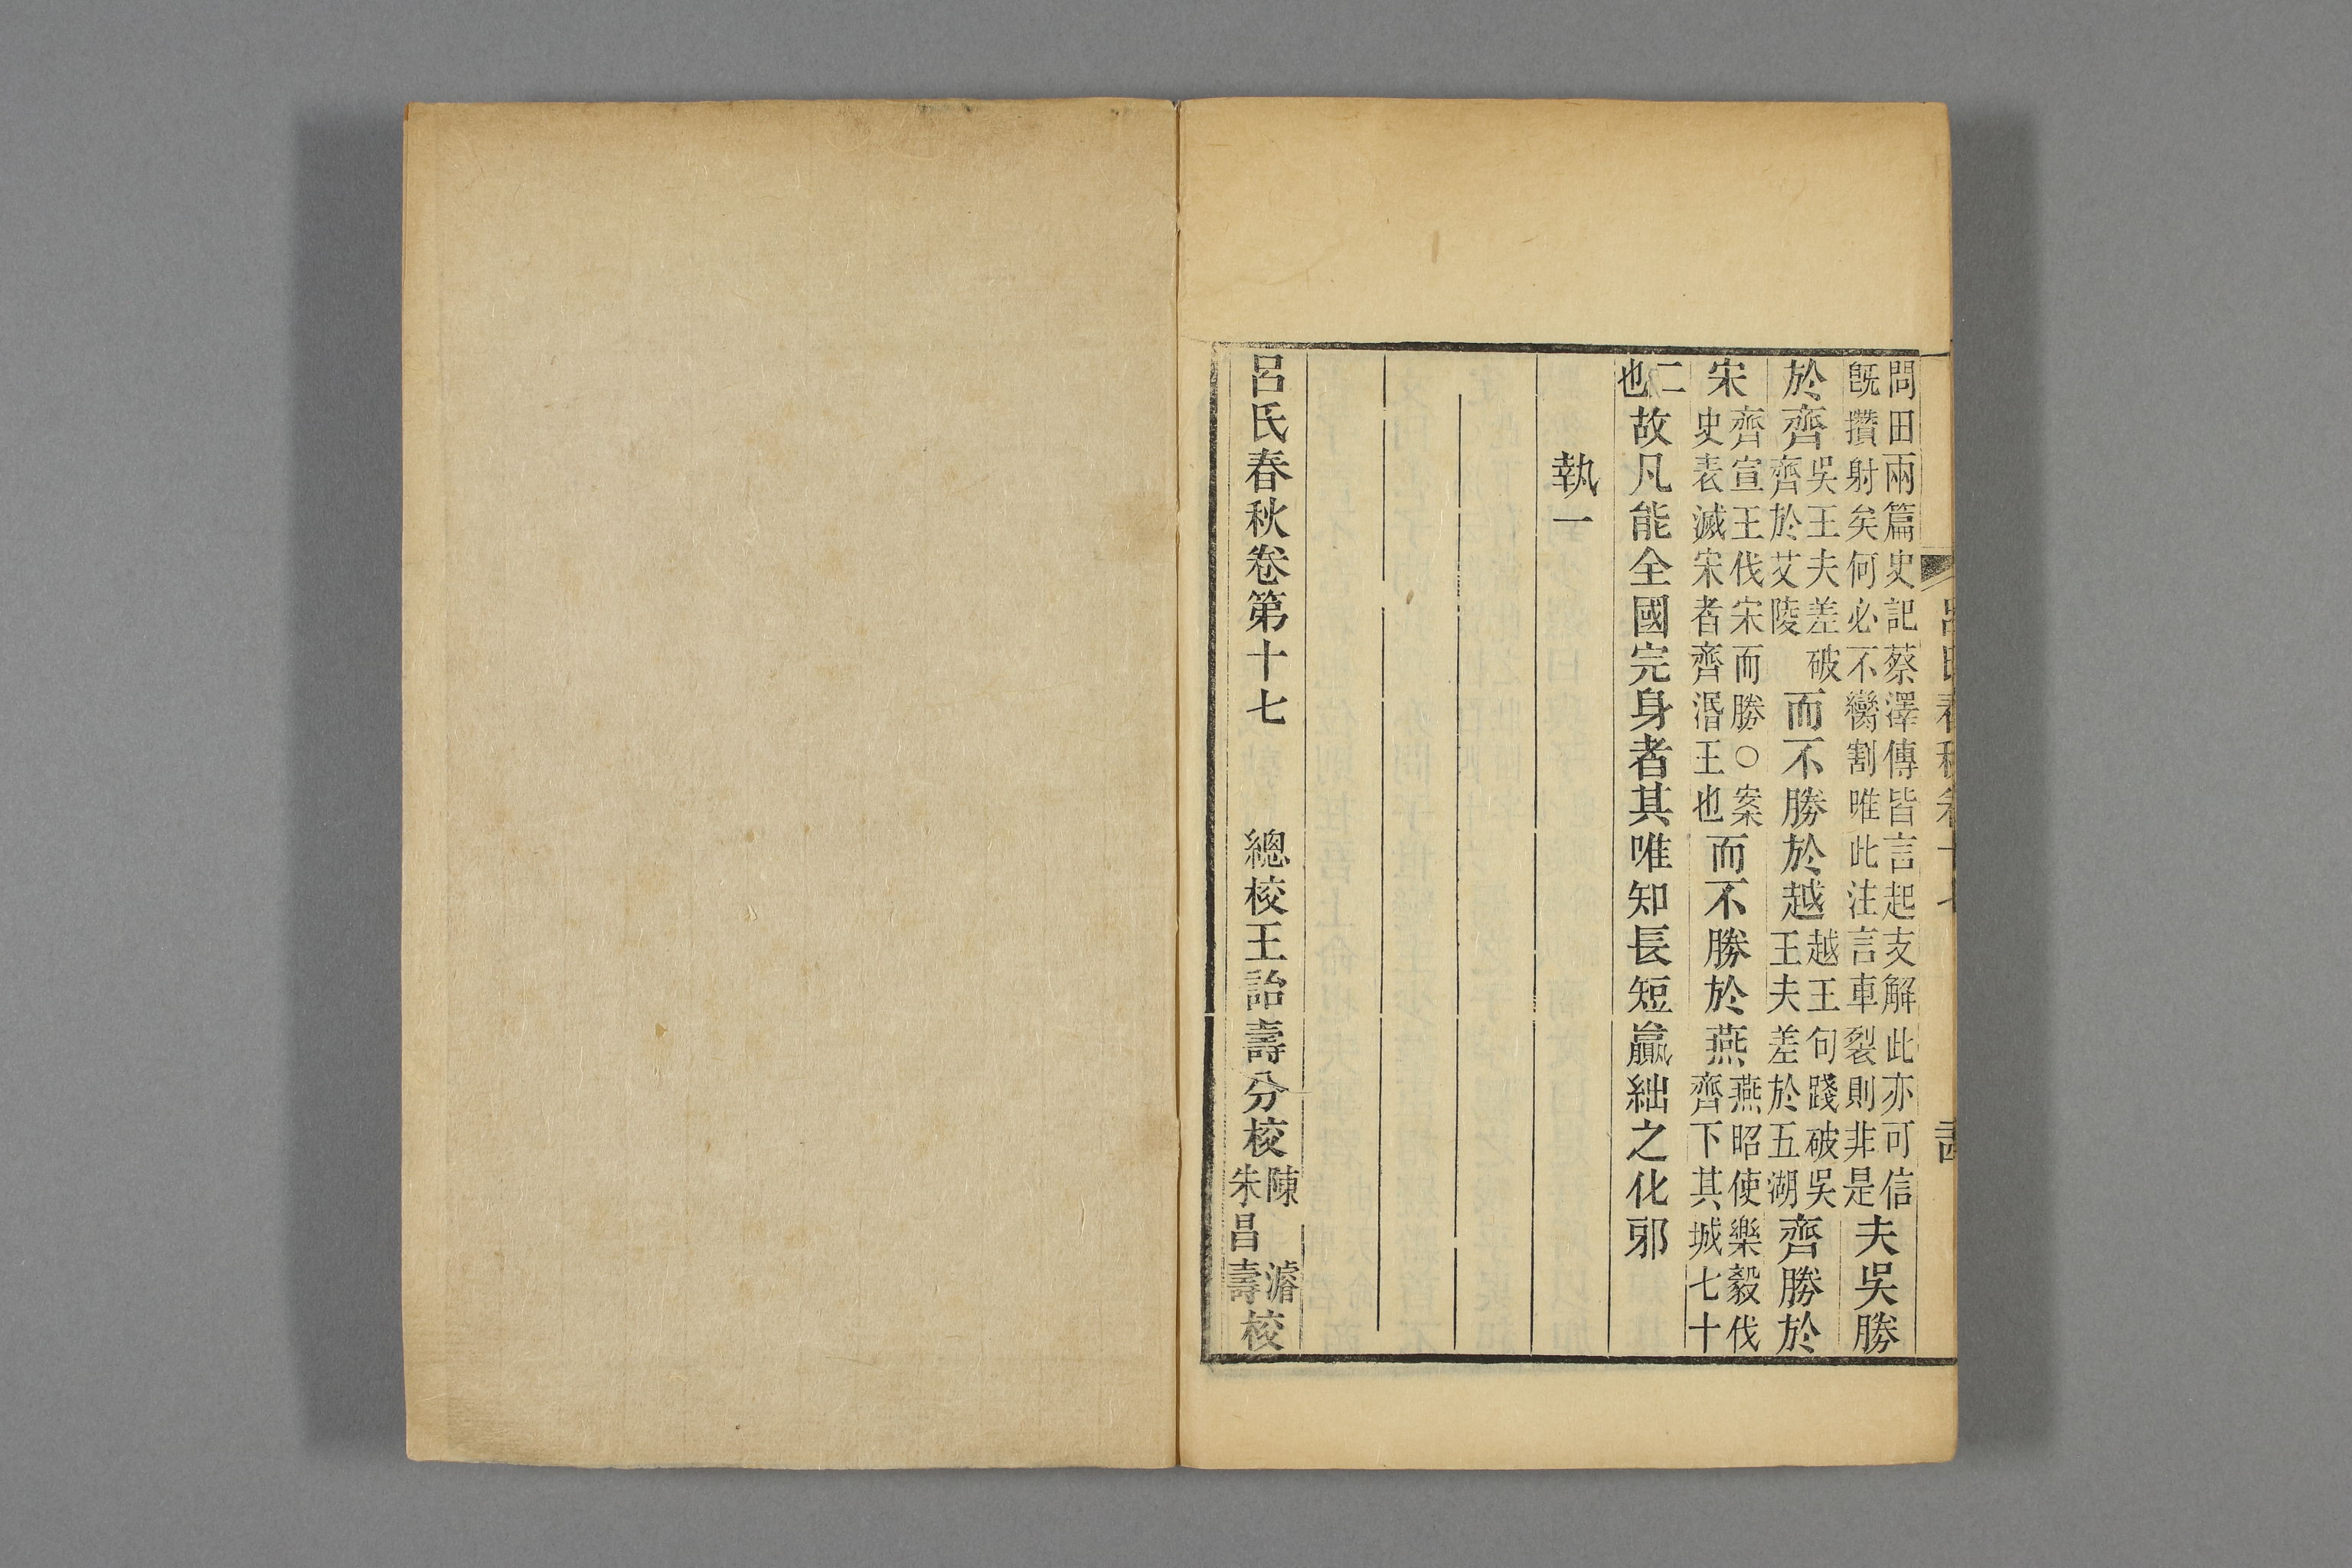 呂氏春秋卷十七
問田兩篇史記蔡澤傳皆言起支解此亦可信旣攢射矣何必不臠割唯此注言車裂則非是夫吳勝
於齊吳王夫差破齊於艾陵而不勝於越越王句踐破吳王夫差於五湖齊勝於
宋齊宣王伐宋而勝○案史表滅宋者齊湣王也而不勝於燕燕昭使樂毅伐齊下其城七十
二也故凡能全國完身者其唯知長短贏絀之化邪
執一
呂氏春秋卷第十七 總校王詒壽分校陳濬朱昌壽校